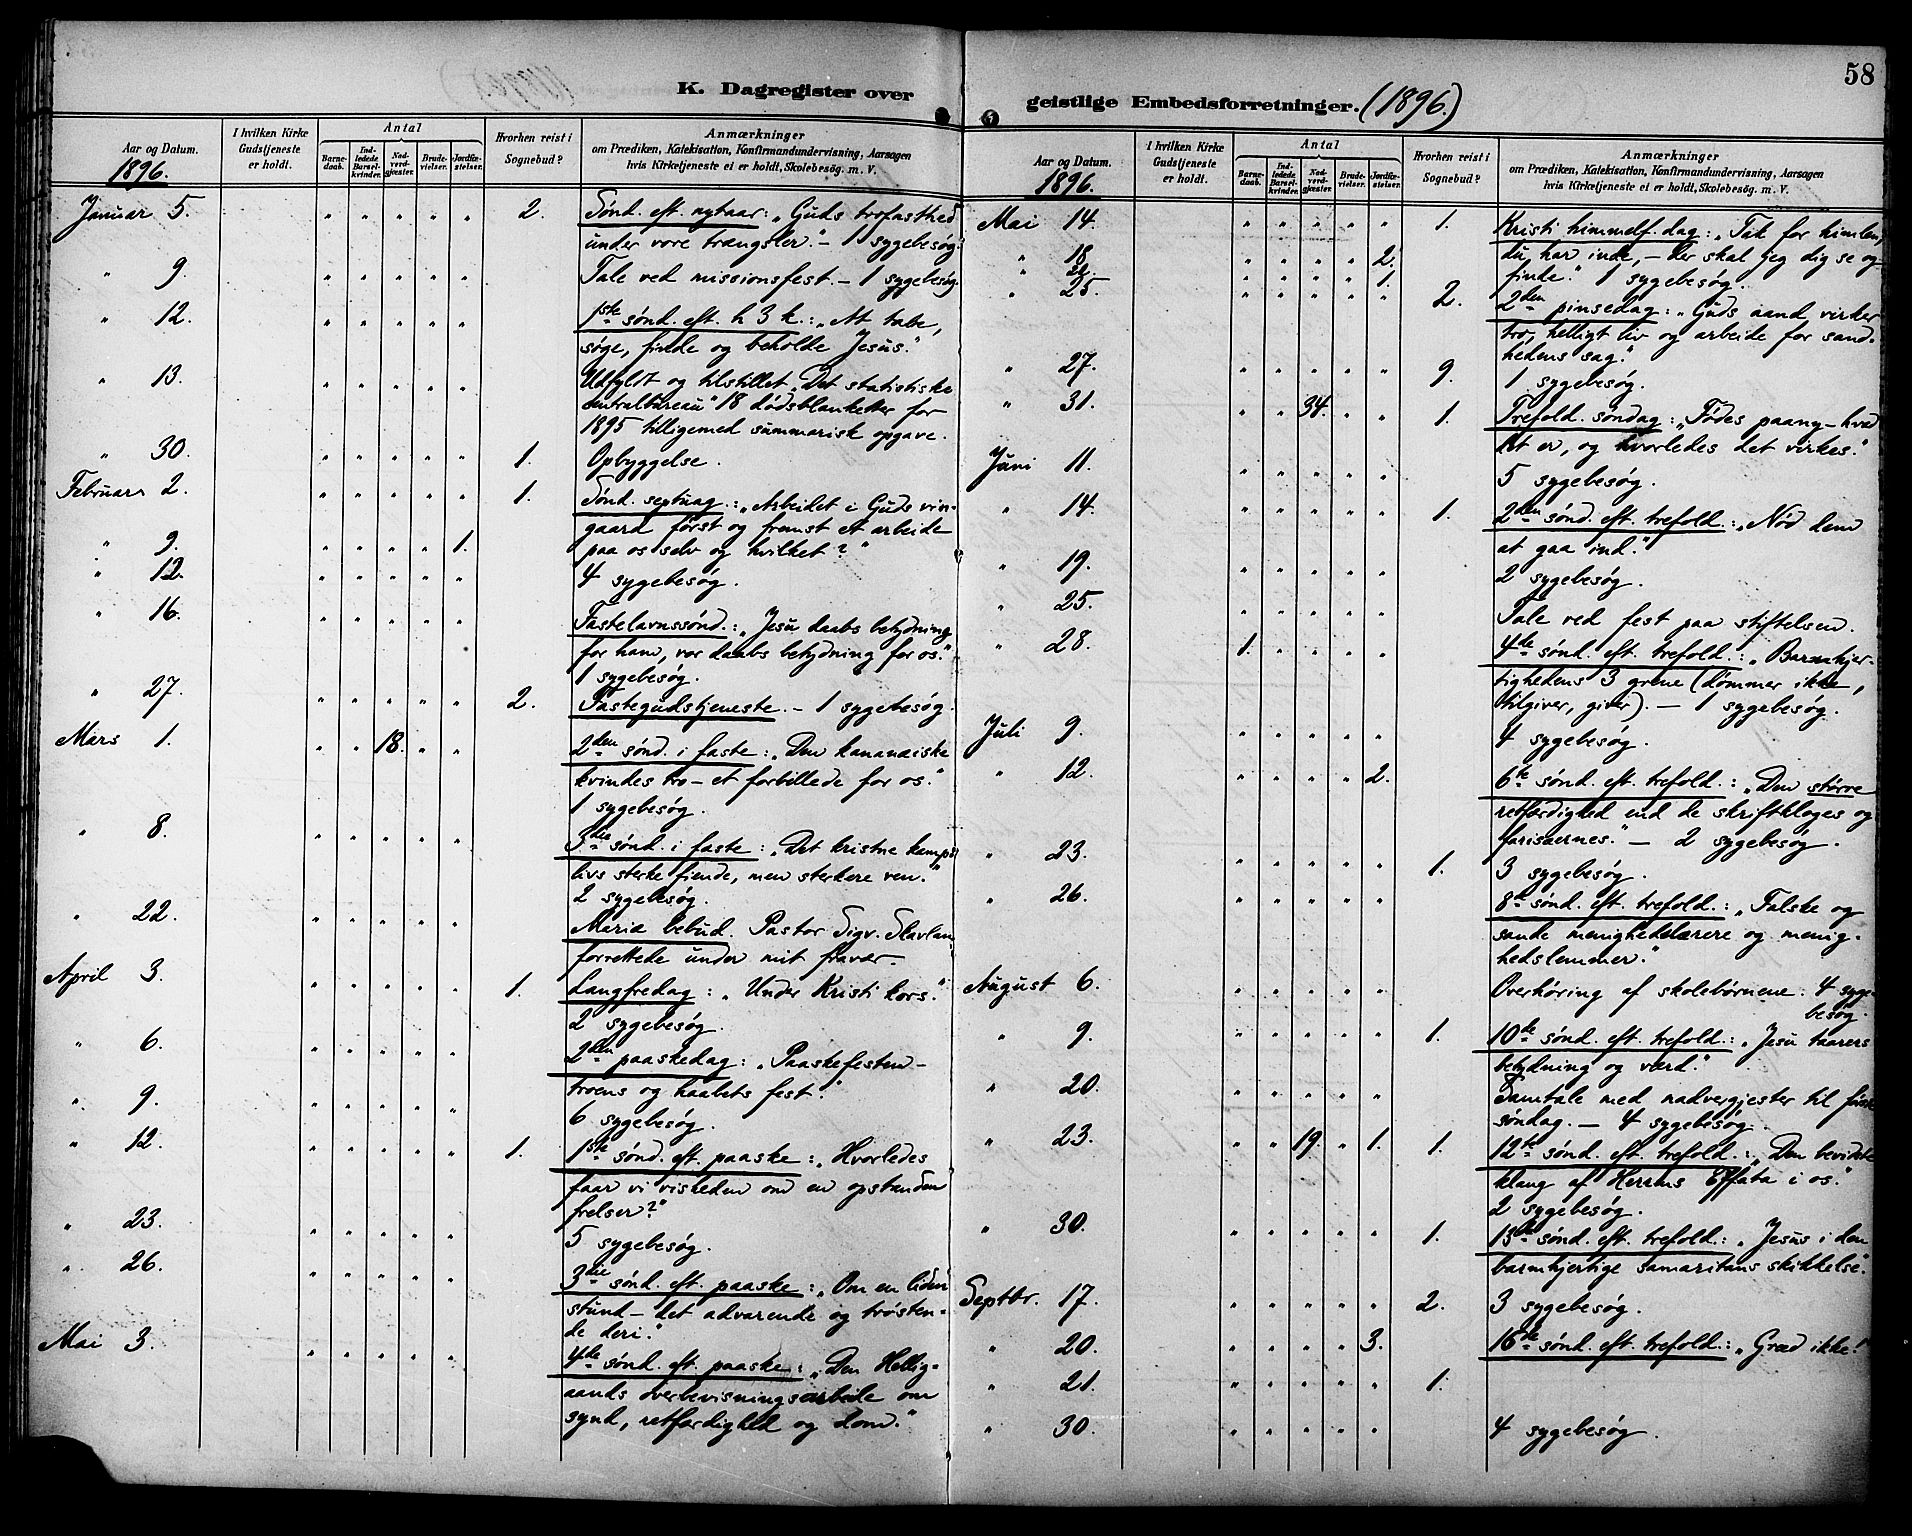 58
K. Dagregister over
Aar og Datum.
1896.
I hvilken Kirke Gudstjeneste er holdt.
Antal
Barnedaab.
Indledede Barselkvinder.
Nadverdgjæster.
Brudevielser.
Jordfæstelser.
Hvorhen reist i Sognebud?
Anmærkninger
om Prædiken, Katekisation, Konfirmandundervisning, Aarsagen
hvis Kirketjeneste ei er holdt, Skolebesøg. m. V.
Januar 5. " " " " " 2. Sønd. eft. nytaar: „Guds trofasthed
under vore trængsler." - 1 sygebesøg.
" 9. " " " " " Tale ved missionsfest. - 1 sygebesøg.
" 12. " " " " " 1ste sønd. eft. h 3 k.: „At tabe,
søge, finde og beholde Jesus."
" 13. " " " " " Udfyldt og tilstillet „Det statistiske
centralbureau" 18 dødsblanketter for
1895 tilligemed summarisk opgave.
" 30. " " " " " 1. Opbyggelse.
Februar 2. " " " " " 1. Sønd. septuag.: „Arbeidet i Guds vin-
gaard først og fremst et arbeide
" 9. " " " " 1. paa os selv og hvilket?"
" 12. " " " " " 4 sygebesøg.
" 16. " " " " " Fastelavnssønd.: „Jesu daabs betydning
for ham, vor daabs betydning for os."
1 sygebesøg.
" 27. " " " " " 2. Fastegudstjeneste. - 1 sygebesøg.
Mars 1. " " 18. " " 2den sønd. i faste: „Den kananæiske
kvindes tro - et forbillede for os."
1 sygebesøg.
" 8. " " " " " 3die sønd. i faste: „Det kristne kamps
livs sterke fiende, men sterkere ven."
2 sygebesøg.
" 22. " " " " " Mariæ bebud. Pastor Sigv. Skavlan
forrettede under mit fravær.-
April 3. " " " " " 1. Langfredag: „Under Kristi kors."
2 sygebesøg.
" 6. " " " " " 2den paaskedag: „Paaskefesten -
troens og haabets fest."
" 9. " " " " " 6 sygebesøg.
" 12. " " " " " 1. 1ste sønd. eft. paaske: „Hvorledes
faar vi visheden om en opstanden
frelser?"
" 23. " " " " " 5 sygebesøg.
" 26. " " " " " 3die sønd. eft. paaske: „Om en liden
stund - det advarende og trøsten-
de deri."
Mai 3. " " " " " 4de sønd. eft. paaske: „Den Hellig-
aands overbevisningsarbeide om
synd, retfærdighed og dom."
geistlige Embedsforretninger. (1896.)
Aar og Datum.
1896.
I hvilken Kirke Gudstjeneste er holdt.
Antal
Barnedaab.
Indledede Barselkvinder.
Nadverdgjæster.
Brudevielser.
Jordfæstelser.
Hvorhen reist i Sognebud?
Anmærkninger
om Prædiken, Katekisation, Konfirmandundervisning, Aarsagen
hvis Kirketjeneste ei er holdt, Skolebesøg. m. V.
Mai 14. " " " " " 1. Kristi himmelf. dag: „Tak for himlen,
" 18. " " " " 2. du har inde, - der skal jeg dig se og
" " " " " 1. finde." 1 sygebesøg.
" 25. " " " " " 2. 2den pinsedag: „Guds aand virker
tro, helligt liv og arbeide for sand-
hedens sag."
" 27. " " " " " 9. 1 sygebesøg.
" 31. " " 34. " " 1. Trefold. søndag: „Fødes paany - hvad
det er, og hvorledes det virkes."
Juni 11. " " " " " 5 sygebesøg.
" 14. " " " " " 1. 2den sønd. eft. trefold.: „Nød dem
at gaa ind."
" 19. " " " " " 2 sygebesøg.
" 25. " " " " " Tale ved fest paa stiftelsen.
" 28. 1. " " " " 4de sønd. eft. trefold.: „Barmhjer-
tighedens 3 grene (dømmer ikke,
tilgiver, giver). - 1 sygebesøg.
Juli 9. " " " " " 4 sygebesøg.
" 12. " " " " 2. 6te sønd. eft. trefold.: „Den større
retfærdighed end de skriftkloges og
farisæernes." - 2 sygebesøg.
" 23. " " " " " 1. 3 sygebesøg.
" 26. " " " " " 8de sønd. eft. trefold.: „Falske og
sande menighedslærere og menig-
hedslemmer."
August 6. " " " " " Overhøring af skolebørnene. 4 syge-
besøg.
" 9. " " " " " 1. 10de sønd. eft. trefold.: „Jesu taarers
betydning og værd."
" 20. " " " " " Samtale med nadvergjester til første
søndag. - 4 sygebesøg.
" 23. " " 19. " 1. 1. 12te sønd. eft. trefold.: „Den
klang af Herrens Effata i os."
2 sygebesøg.
" 30. " " " " " 1. 13de sønd. eft. trefold.: „Jesus i den
barmhjertige samaritans skikkelse."
Septbr. 17. " " " " " 2. 3 sygebesøg.
" 20. " " " " 3. 16de sønd. eft. trefold.: „Græd ikke!
" 21. " " " " " 1.
" 30. " " " " " 4 sygebesøg.